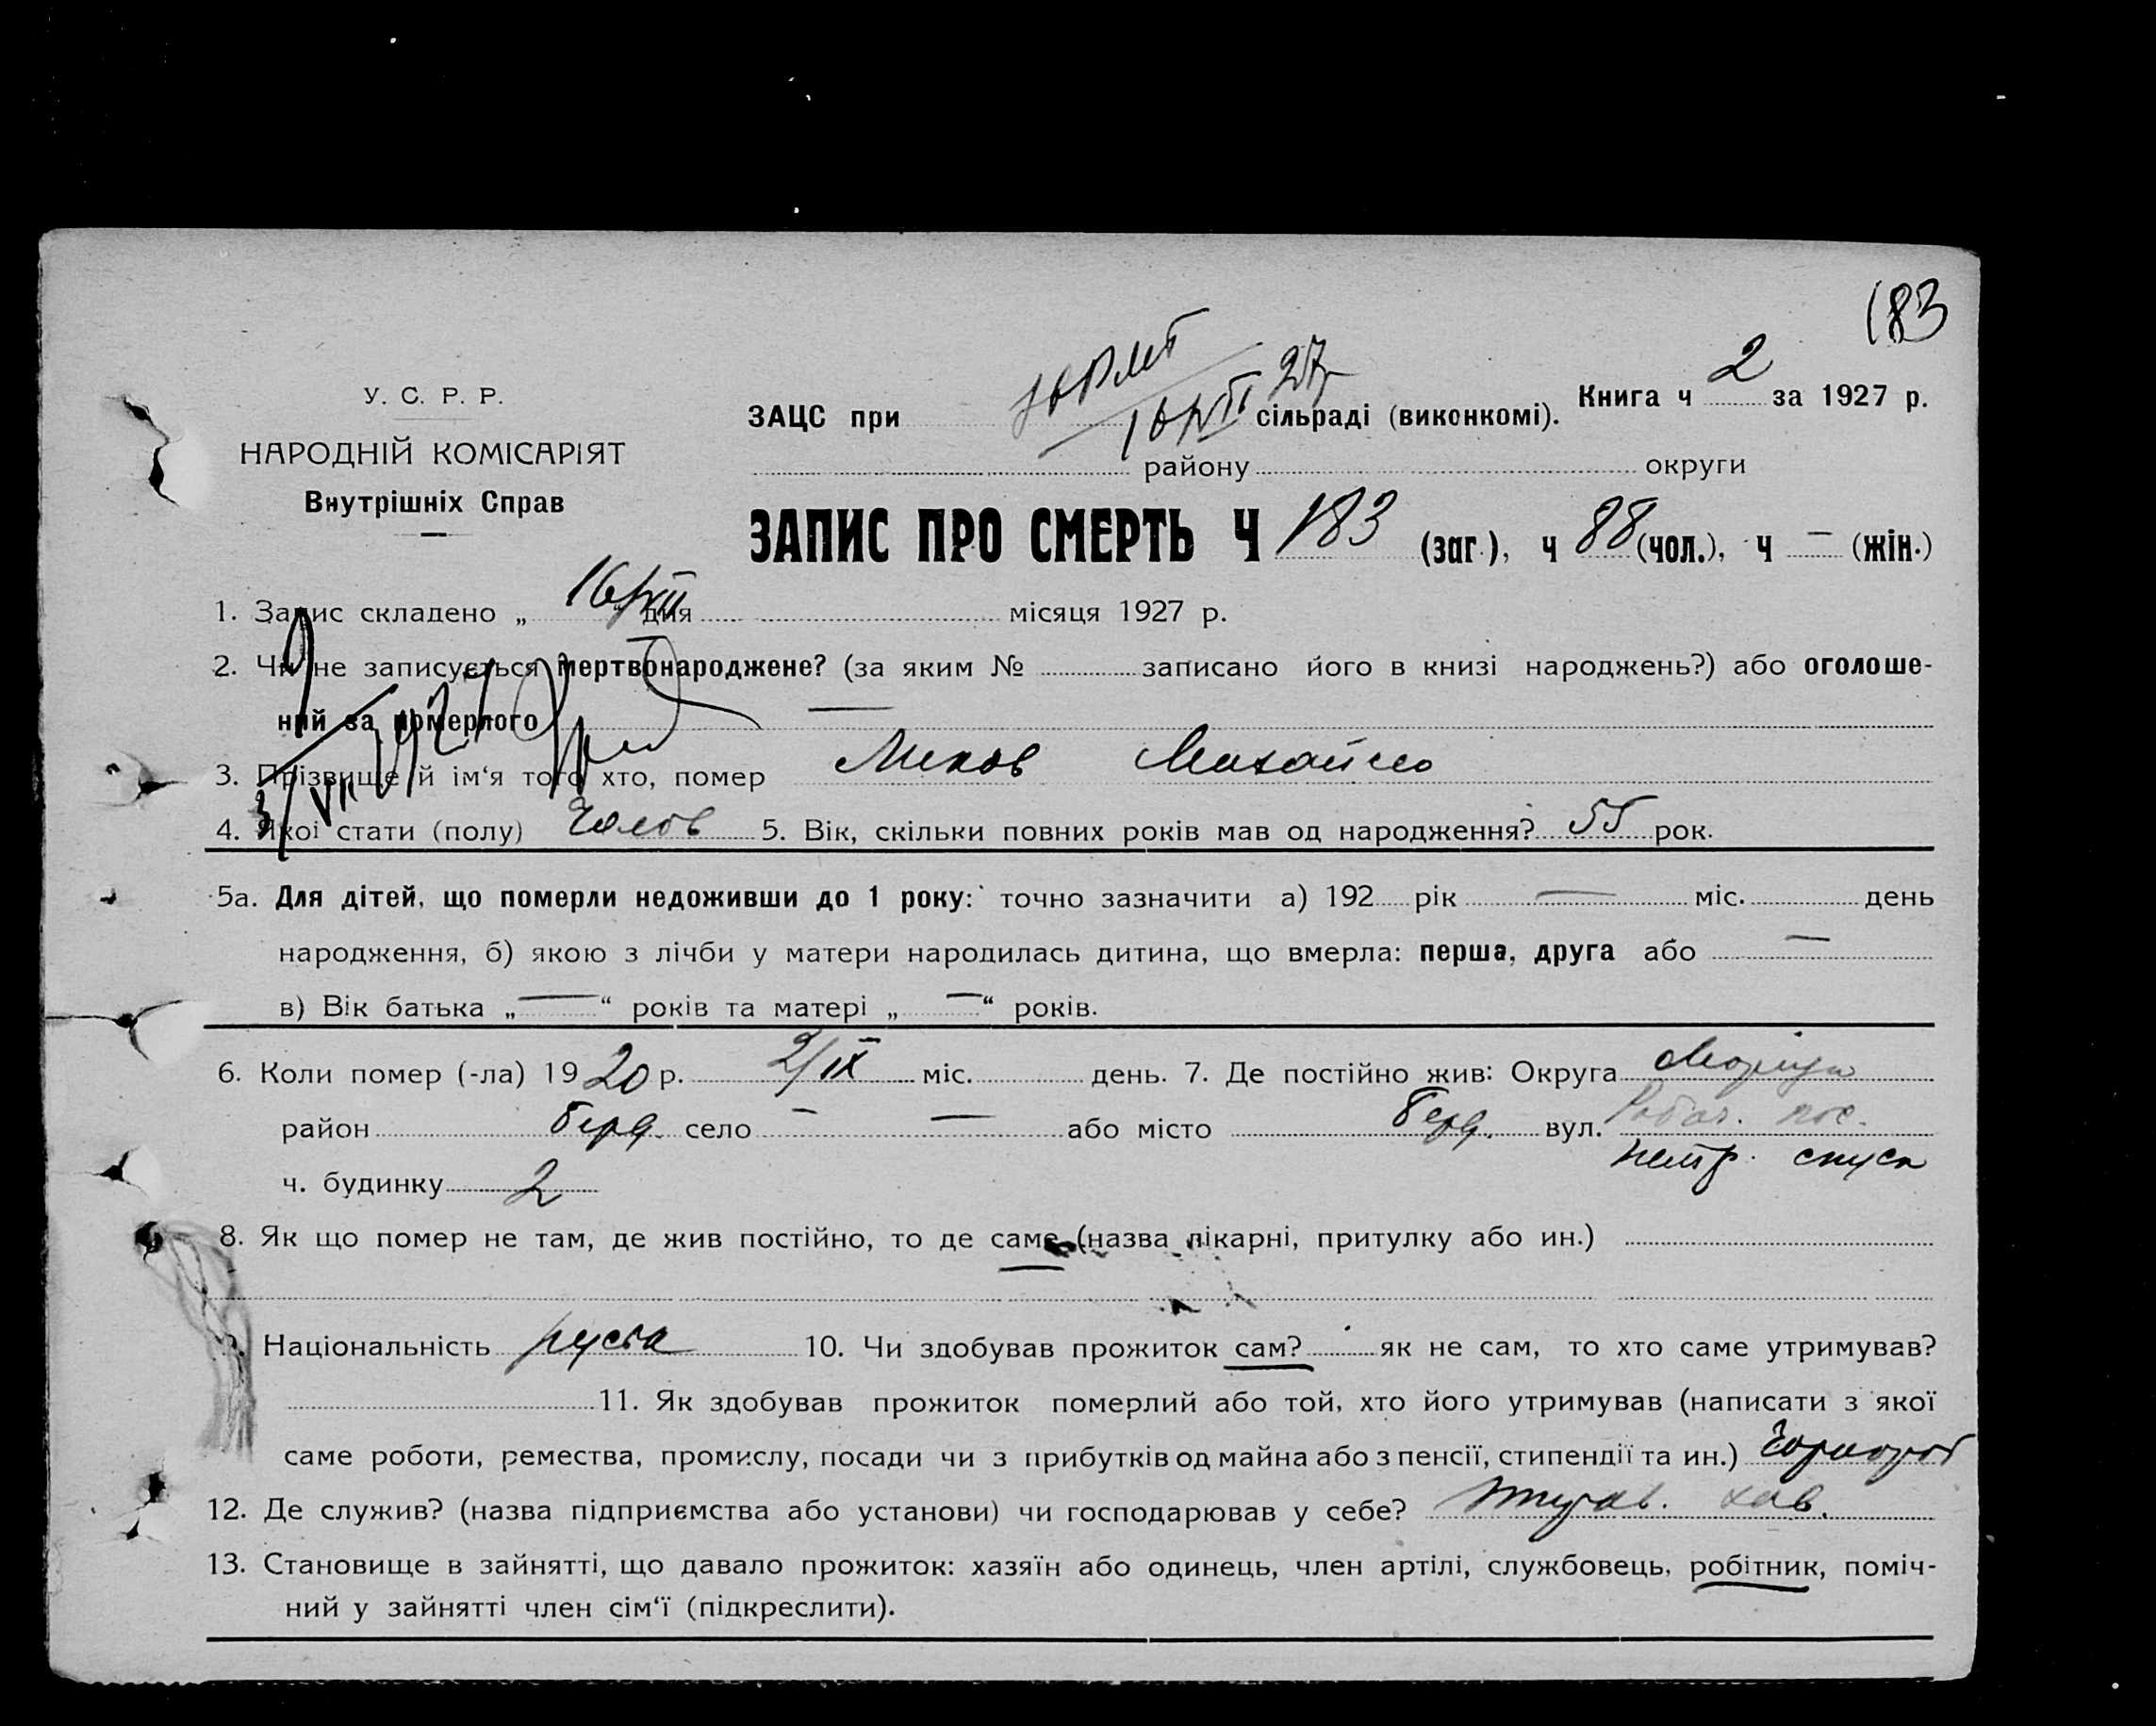 183
У. С. Р. Р.
НАРОДНІЙ КОМІСАРІЯТ
Внутрішніх Справ
ЗАЦС при сільраді (виконкомі). Книга ч 2 за 1927 р.
району округи
ЗАПИС ПРО СМЕРТЬ Ч 183 (заг.), ч 88 (чол.), ч — (жін.)
1. Запис складено „16/VII“ дня місяця 1927 р.
2. Чи не записується мертвонароджене? (за яким № записано його в книзі народжень?) або оголоше-
ний за померлого —
3. Прізвище й ім‘я того хто, помер Михайло
4. Якої стати (полу) Чолов 5. Вік, скільки повних років мав од народження? 55 рок.
5а. Для дітей, що померли недоживши до 1 року: точно зазначити а) 192 рік — міс. день
народження, б) якою з лічби у матери народилась дитина, що вмерла: перша, друга або —
в) Вік батька „—“ років та матері „—“ років.
6. Коли помер (-ла) 1920 р. 2/IX міс. день. 7. Де постійно жив: Округа Маріуп
район Берд. село — — або місто Берд. вул. Робоч. пос.
спуск
ч. будинку 2
8. Як що помер не там, де жив постійно, то де саме (назва лікарні, притулку або ин.)
9. Національність руська 10. Чи здобував прожиток сам? як не сам, то хто саме утримував?
11. Як здобував прожиток померлий або той, хто його утримував (написати з якої
саме роботи, ремества, промислу, посади чи з прибутків од майна або з пенсії, стипендії та ин.) Чорнороб
12. Де служив? (назва підприємства або установи) чи господарював у себе?
13. Становище в зайнятті, що давало прожиток: хазяїн або одинець, член артілі, службовець, робітник, поміч-
ний у зайнятті член сім‘ї (підкреслити).